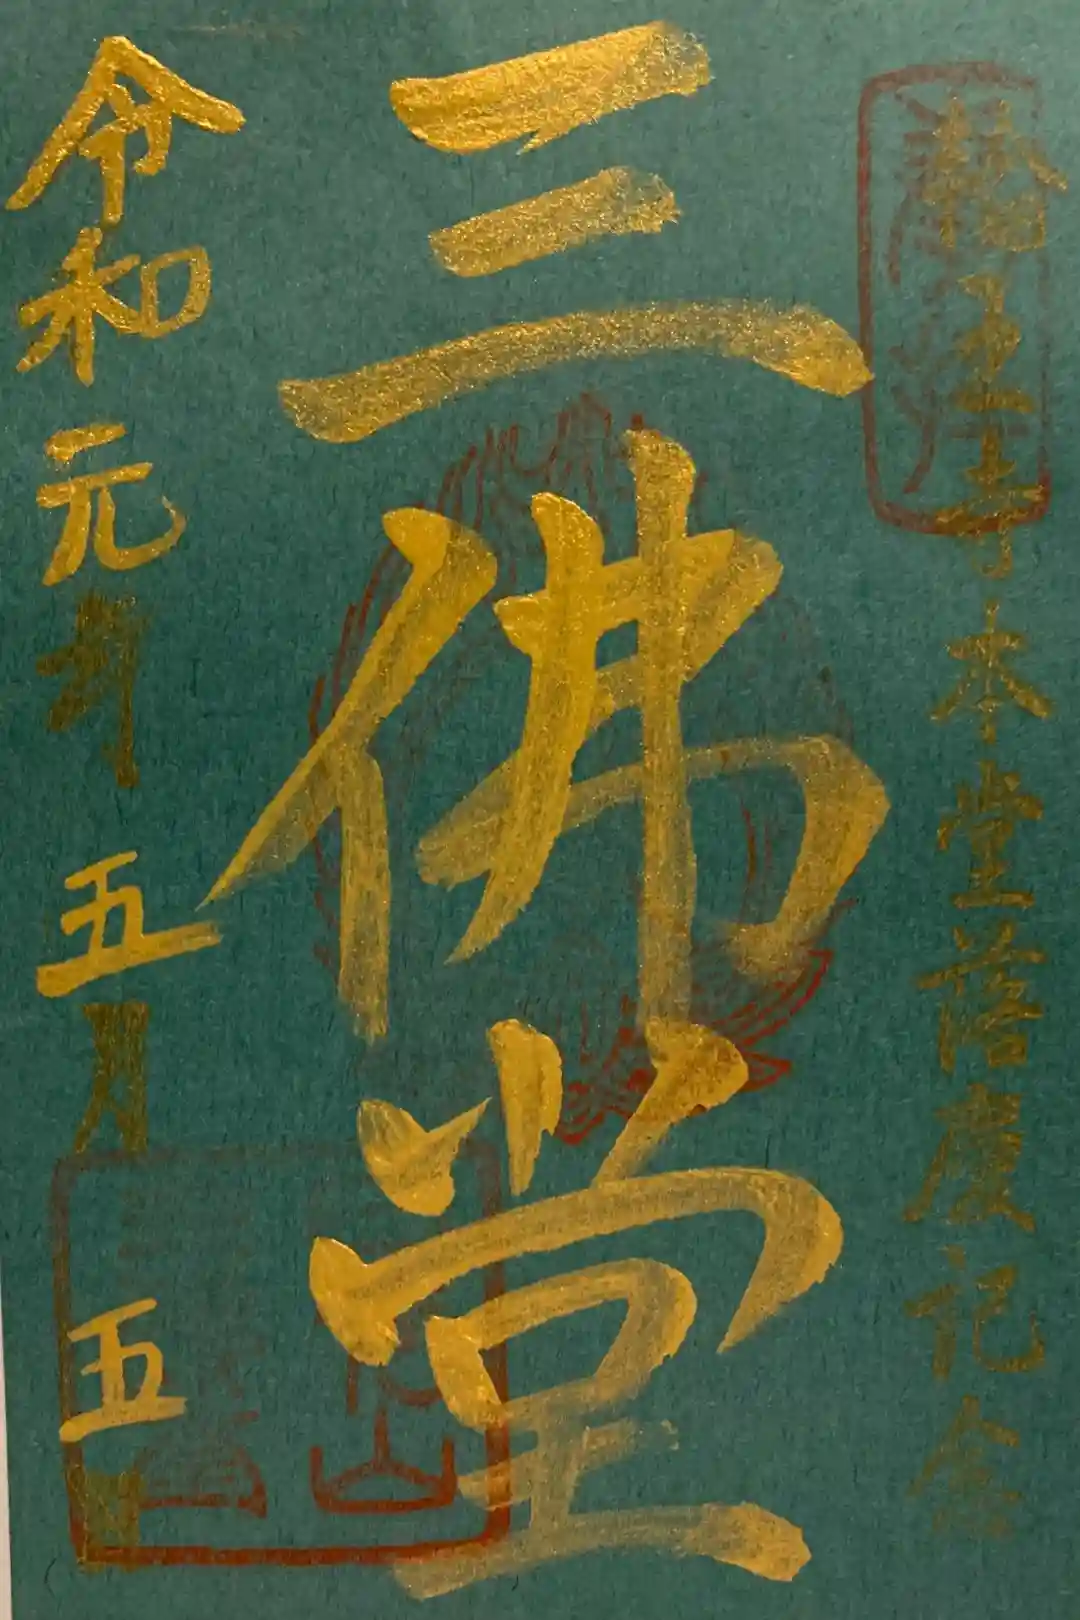 輪王寺本堂落慶記念
三佛堂
令和元年五月五日